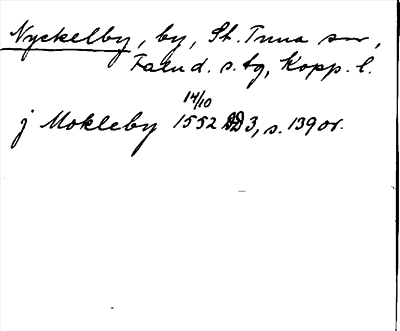 Nyckelby, by, St. Tuna sn,
Falu d. s. tg, Kopp. l.
14/10
j Mokleby 1552 DD 3, s. 139 or.